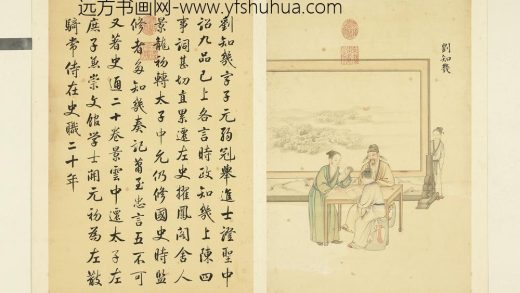 远方书画网-www.yfshuhua.com
劉知幾
劉知幾字子元弱冠舉進士證聖中
詔九品已上各言時政知幾上陳四
事詞甚切直累遷左史擢鳳閣舍人
景龍初轉太子中允仍修國史時監
修者多知幾奏記蕭至忠言五不可
又著史通二十卷景雲中遷太子左
庶子兼崇文館學士開元初為左散
騎常侍在史職二十年